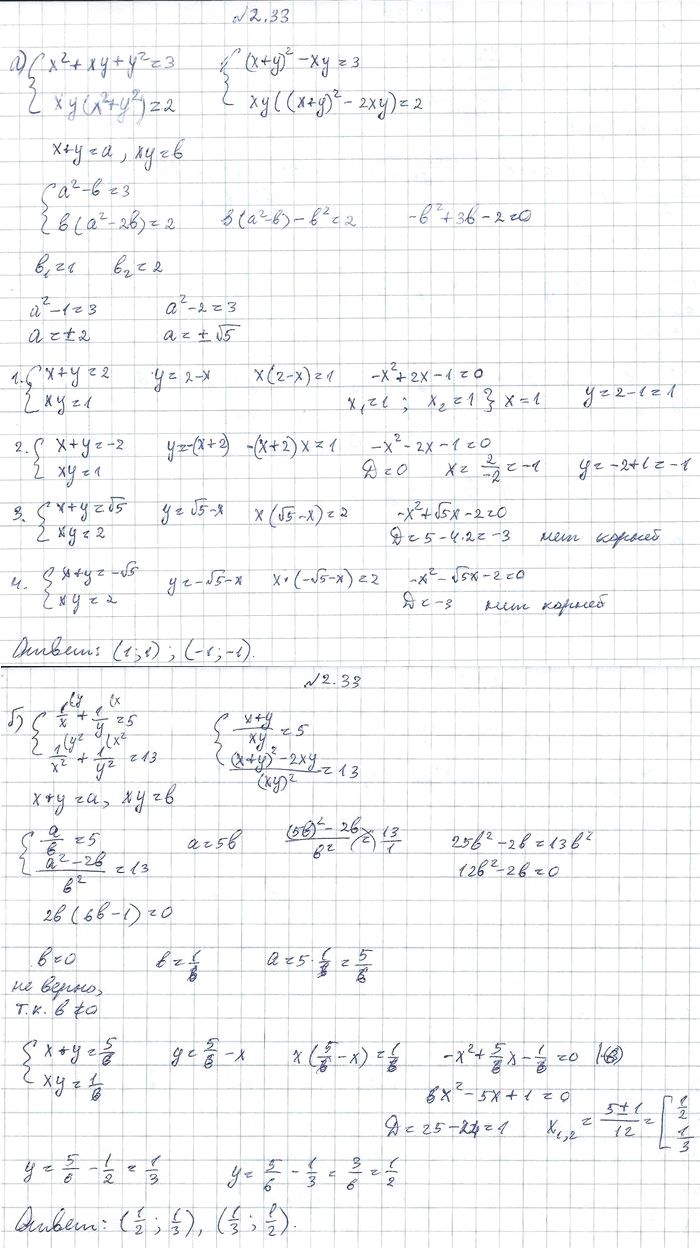 №2.33
а) { x² + xy + y² = 3 { (x+y)² - xy = 3
xy(x²+y²) = 2 xy((x+y)² - 2xy) = 2
x+y = a, xy = b
{ a² - b = 3
b(a² - 2b) = 2 b(a²-b) - b² = 2 -b² + 3b - 2 = 0
b₁ = 1 b₂ = 2
a² - 1 = 3 a² - 2 = 3
a = ±2 a = ±√5
1. { x+y = 2 y = 2-x x(2-x) = 1 -x² + 2x - 1 = 0
xy = 1 x₁ = 1 ; x₂ = 1 } x = 1 y = 2-1 = 1
2. { x+y = -2 y = -(x+2) -(x+2)x = 1 -x² - 2x - 1 = 0
xy = 1 D = 0 x = 2/-2 = -1 y = -2+1 = -1
3. { x+y = √5 y = √5-x x(√5-x) = 2 -x² + √5x - 2 = 0
xy = 2 D = 5 - 4·2 = -3 нет корней
4. { x+y = -√5 y = -√5-x x·(-√5-x) = 2 -x² - √5x - 2 = 0
xy = 2 D = -3 нет корней
Ответ: (1;1) ; (-1;-1).
№2.33
б) { 1/x (y + 1/y (x = 5 { (x+y)/xy = 5
1/x² (y² + 1/y² (x² = 13 ((x+y)² - 2xy)/(xy)² = 13
x+y = a, xy = b
{ a/b = 5 a = 5b ((5b)² - 2b)/b² = 13/1 25b² - 2b = 13b²
(a² - 2b)/b² = 13 12b² - 2b = 0
2b(6b - 1) = 0
b = 0 b = 1/6 a = 5·1/6 = 5/6
не верно,
т.к. b ≠ 0
{ x+y = 5/6 y = 5/6 - x x(5/6 - x) = 1/6 -x² + 5/6x - 1/6 = 0 |·(-6)
xy = 1/6 6x² - 5x + 1 = 0
D = 25 - 24 = 1 x₁,₂ = (5±1)/12 = [ 1/2 1/3
y = 5/6 - 1/2 = 1/3 y = 5/6 - 1/3 = 3/6 = 1/2
Ответ: (1/2 ; 1/3), (1/3 ; 1/2).